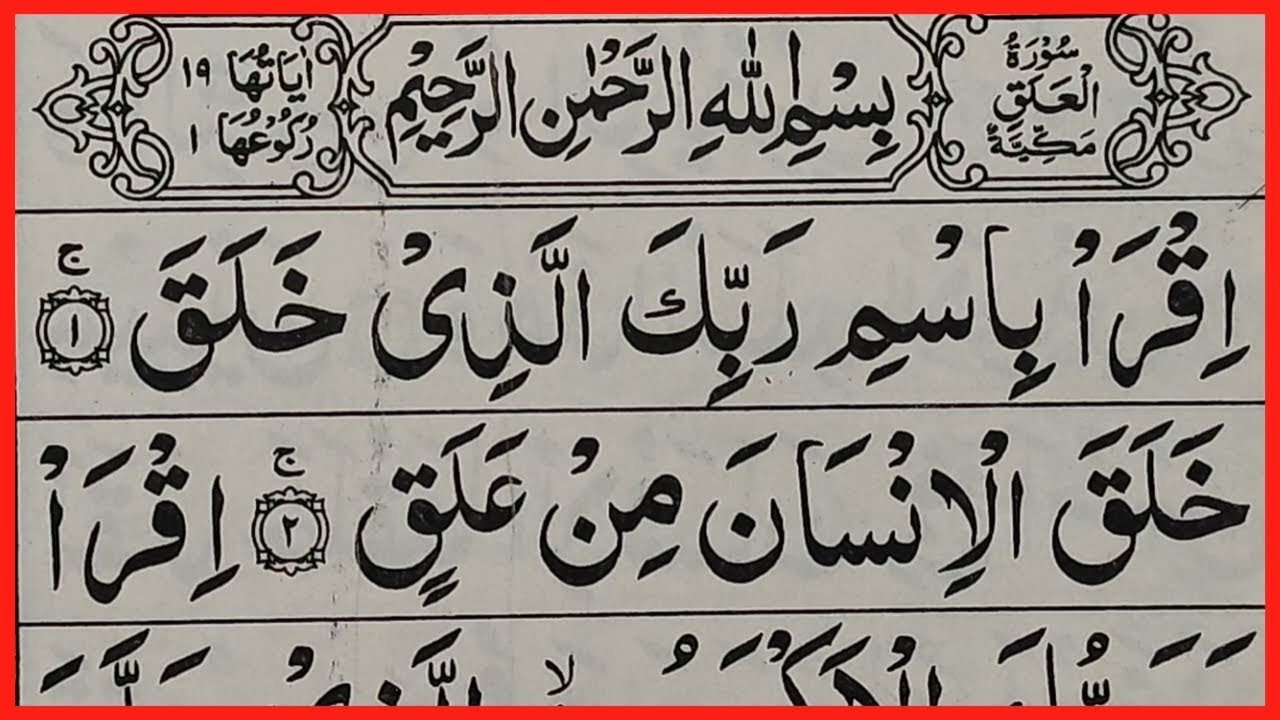 سُوْرَةُ
الْعَلَقِ
مَكِّيَّةٌ
بِسْمِ اللّٰهِ الرَّحْمٰنِ الرَّحِيْمِ
اٰيَاتُهَا ١٩
رُكُوْعُهَا ١
اِقْرَاْ بِاسْمِ رَبِّكَ الَّذِىْ خَلَقَ ۚ ١
خَلَقَ الْاِنْسَانَ مِنْ عَلَقٍ ۚ ٢ اِقْرَاْ